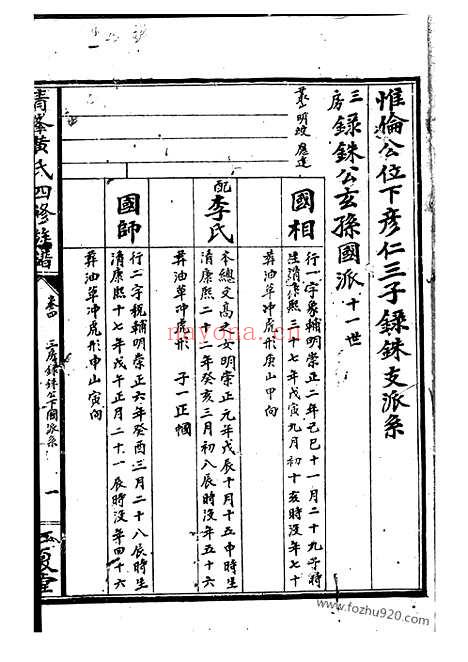 惟倫公位下彥仁三子錄銖支派系
三房錄銖公玄孫國派十一世
明故
國相
行一字象輔明崇正二年己巳十一月二十九子時
生清康熙三十七年戊寅九月初十亥時沒年七十
葬油草冲虎形庚山甲向
配李氏
本總文高女明崇正元年戊辰十月十五申時生
清康熙二十二年癸亥三月初八辰時沒年五十六
葬油草冲虎形 子一正幗
國師
行二字稅輔明崇正六年癸酉三月二十八辰時生
清康熙十七年戊午正月二十一辰時沒年四十六
葬油草冲虎形申山寅向
青峯黃氏四修族譜
卷四
三房錄銖公下國派系
一
江夏堂
nayona.cn
www.fozhu920.com